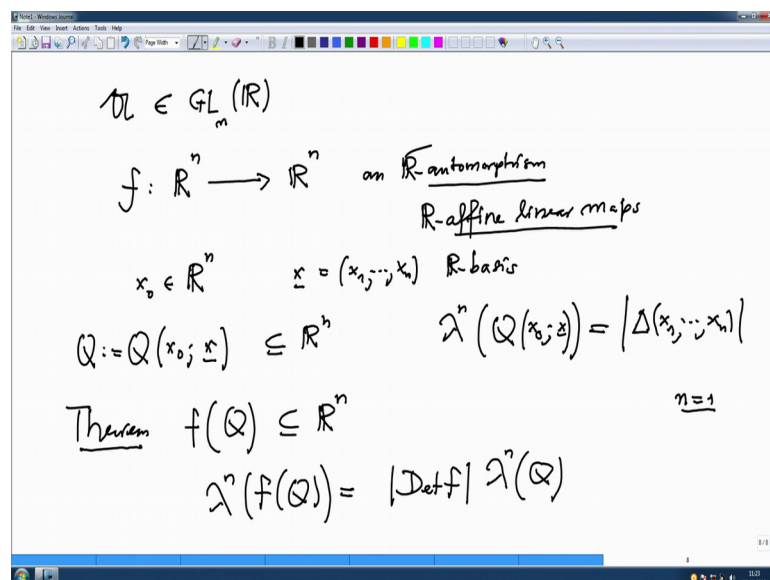 Note1 - Windows Journal
File Edit View Insert Actions Tools Help
Page Width
𝔄 ∈ GL_n(ℝ)
f : ℝ^n ⟶ ℝ^n an ℝ-automorphism
ℝ-affine linear maps
x_0 ∈ ℝ^n x = (x_1, ..., x_n) ℝ-basis
Q := Q(x_0; x) ⊆ ℝ^n λ^n(Q(x_0; x)) = |Δ(x_1, ..., x_n)|
n=1
Theorem f(Q) ⊆ ℝ^n
λ^n(f(Q)) = |Det f| λ^n(Q)
8/8
8
11:23